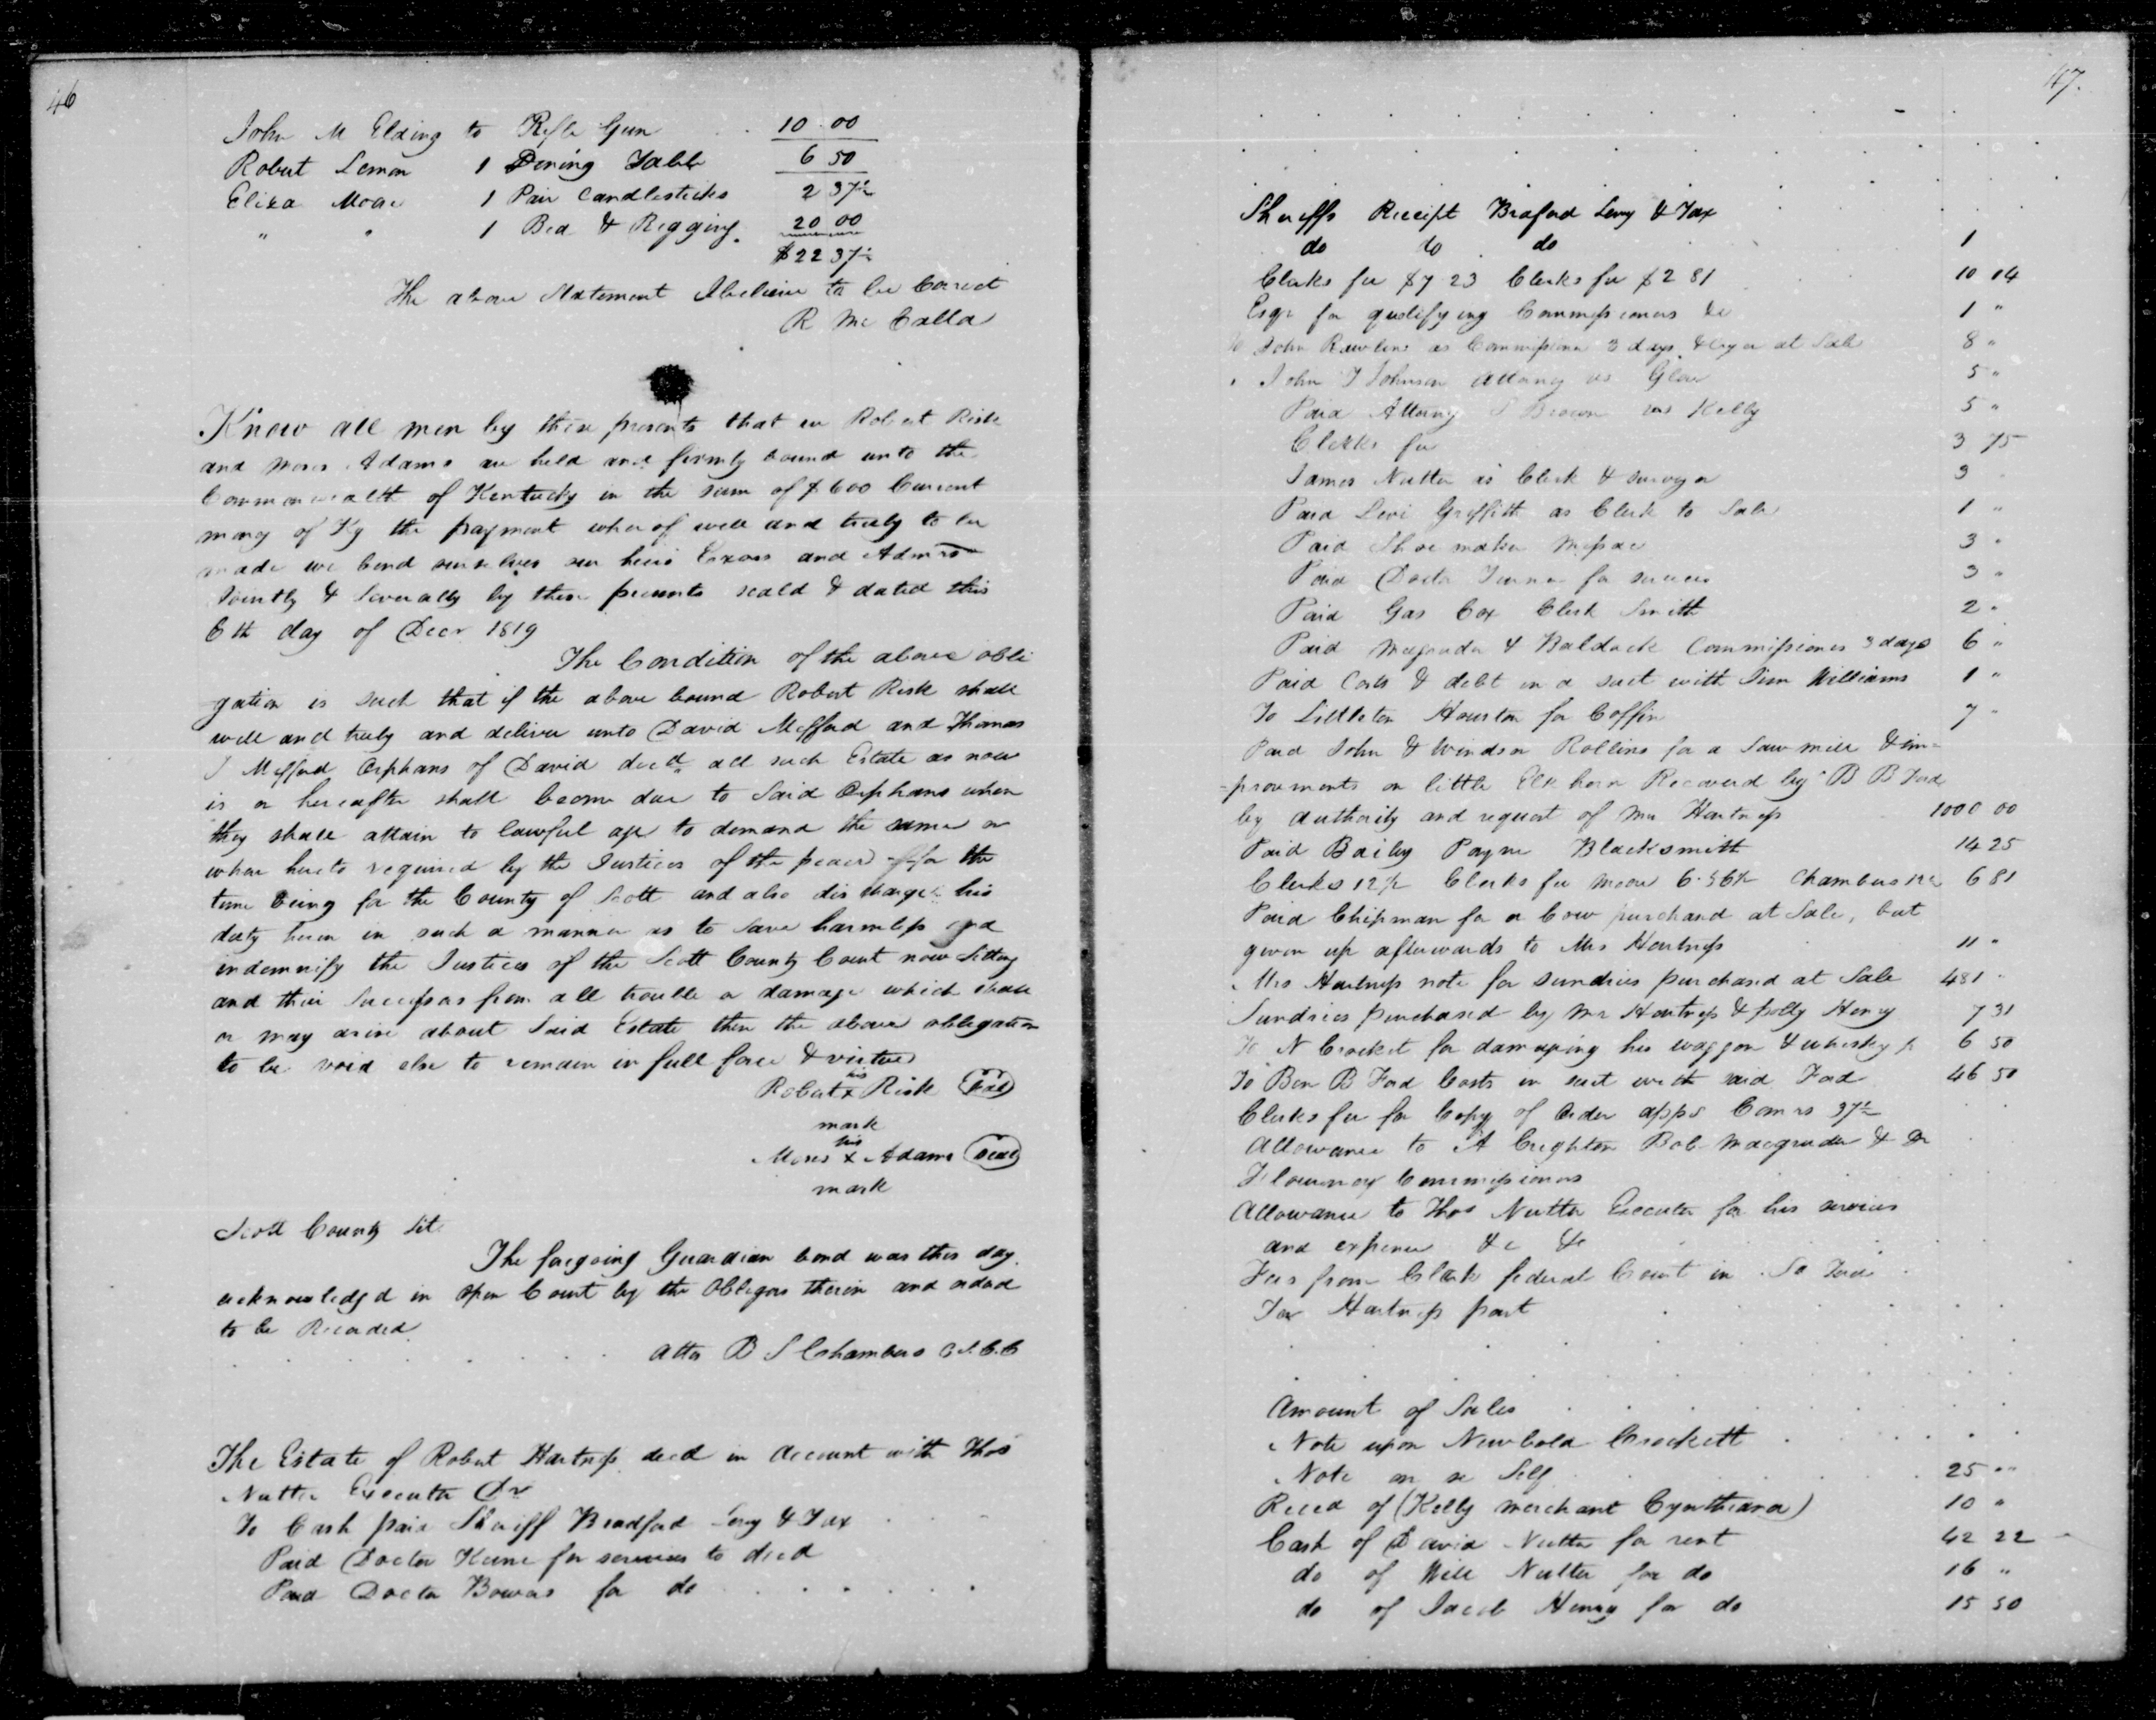 46
John M Elding to Rifle Gun 10.00
Robert Lemon 1 Dining Table 6 50
Eliza Moore 1 Pair Candlesticks 2 37½
" " 1 Bed & Rigging. 20 00
$22 37½
The above Statement I believe to be Correct
R Mc Calla
Know all men by these presents that we Robert Risk
and Moses Adams are held and firmly bound unto the
Commonwealth of Kentucky in the sum of $600 Current
mony of Ky the payment wherof well and truly to be
made we bend ourselves our heirs Exors and Admrs
Jointly & Severally by these presents seald & dated this
6th day of Decr 1819
The Condition of the above obli
gation is such that if the above bound Robert Risk shall
well and truly and deliver unto David Mefford and Thomas
J Mefford Orphans of David decd all such Estate as now
is or hereafter shall become due to Said Orphans when
they shall attain to lawful age to demand the same or
when hereto required by the Justices of the peace for the
time being for the County of Scott and also discharge his
duty herein in such a manner as to save harmless and
indemnify the Justices of the Scott County Court now Sitting
and their Successors from all trouble or damage which shall
or may arise about Said Estate then the above obligation
to be void else to remain in full force & virtue
his
Robert x Risk seal
mark
his
Moses x Adams seal
mark
Scott County Sct
The foregoing Guardian bond was this day
acknowledgd in open Court by the Obligors therein and ordered
to be Recorded
Atto B S Chambers C.S.C.C
The Estate of Robert Hartness decd in Account with Thos
Nutter Executor Dr
To Cash paid Sheriff Bradford Levy & Tax
Paid Doctor Keene for services to decd
Paid Doctor Bowers for do
47.
Sheriffs Receipt Braford Levy & Tax
do do do 1
Clerks fee $7 23 Clerks fee $2 81 10 04
Esqr for qualifying Commissioners &c 1 "
To John Rawlins as Commissioner 3 days & at Sale 8 "
" John T Johnson attorny vs 5 "
Paid Attorny S Brown vs Kelly 5 "
Clerks fee 3 75
James Nutter as Clerk & surveyor 3
Paid Levi Griffith as Clerk to Sale 1 "
Paid Shoemaker 3 "
Paid Doctor Turner for services 3 "
Paid Gas Cox Clerk Smith 2 "
Paid Magruder & Baldock Commissioners 3 days 6 "
Paid Costs & debt in a suit with Jim Williams 1 "
To Littleton Houston for Coffin 7 "
Paid John & Windsor Rollins for a Saw mill & im=
=provments on little Elk horn Recoverd by B B Ford
by authority and request of Mr Hartness 1000 00
Paid Bailey Payne Blacksmith 14 25
Clerks 12½ Clerks fee Moore 6.56½ Chambers 12½ 6 81
Paid Chipman for a Cow purchased at Sale, but
given up afterwards to Mrs Hartness 11 "
Mrs Hartness note for sundries purchased at Sale 481 "
Sundries purchased by Mr Hartness & polly Henry 7 31
To N Crockett for damaging his waggon & whiskey 6 50
To Ben B Ford Costs in suit with said Ford 46 50
Clerks fee for Copy of order apps Comrs 37½
Allowance to A Creighton Bob Macgruder &
Flournoy Commissioners
Allowance to Thos Nutter Executor for his services
and expence &c &c
Fees from Clerk federal Court in
Tax Hartness part
Amount of Sales
Note upon Newbold Crockett
Note on Self 25 ""
Recd of (Kelly merchant Cynthiana) 10 "
Cash of David Nutter for rent 42 22
do of Will Nutter for do 16 "
do of Jacob Henry for do 15 50